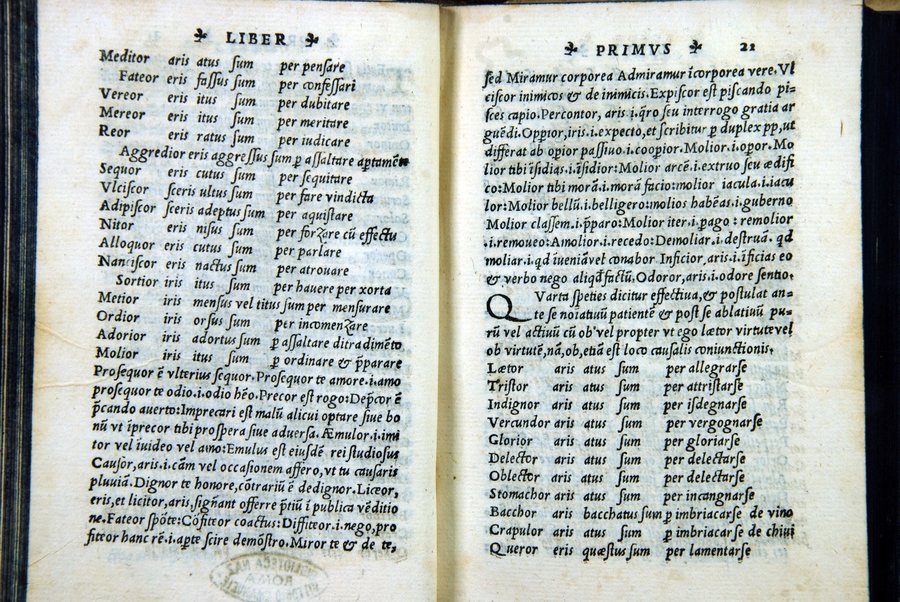 LIBER
Meditor aris atus sum per pensare
Fateor eris fassus sum per cōfessari
Vereor eris itus sum per dubitare
Mereor eris itus sum per meritare
Reor eris ratus sum per iudicare
Aggredior eris aggressus sum ꝑ assaltare aptamēte
Sequor eris cutus sum per sequitare
Vlciscor sceris ultus sum per fare vindicta
Adipiscor sceris adeptus sum per aquistare
Nitor eris nisus sum per forzare cū effectu
Alloquor eris cutus sum per parlare
Nanciscor eris nactus sum per atrouare
Sortior iris itus sum per hauere per xorta
Metior iris mensus vel titus sum per mensurare
Ordior iris orsus sum per incomenzare
Adorior iris adortus sum ꝑ assaltare ditradimēto
Molior iris itus sum ꝑ ordinare & p̄parare
Prosequor ē vlterius sequor. Prosequor te amore.i.amo
prosequor te odio.i.odio hēo. Precor est rogo: Dep̄cor ē
p̄cando auerto: Imprecari est malū alicui optare siue bo
nū vt īprecor tibi prospera siue aduersa. Æmulor.i.imi
tor vel īuideo vel amo: Emulus est eiusdē rei studiosus
Causor, aris.i.cām vel occasionem affero, vt tu causaris
pluuiā. Dignor te honore, cōtrariū ē dedignor. Liceor,
eris, et licitor, aris, signāt offerre p̄tiū ī publica vēditio
ne. Fateor spōte: Cōfiteor coactus: Diffiteor.i.nego, pro
fiteor hanc rē.i.apte scire demōstro. Miror te & de te,
PRIMVS 21
sed Miramur corporea Admiramur īcorporea vere. Vl
ciscor inimicos & de inimicis. Expiscor est piscando pi-
sces capio. Percontor, aris.i.q̄ro seu interrogo gratia ar
guēdi. Oppior, iris.i.expecto, et scribitur ꝑ duplex pp, ut
differat ab opior passiuo.i.coopior. Molior.i.opor. Mo
lior tibi īsidias.i.īsidior: Molior arcē.i.extruo seu ædifi
co: Molior tibi morā.i.morā facio: molior iacula.i.iacu
lor: Molior bellū.i.belligero: molios habēas.i.guberno
Molior classem.i.p̄paro: Molior iter.i.pago: remolior
.i.remoueo: Amolior.i.recedo: Demoliar.i.destruā. qd
moliar.i.qd īueniā vel conabor Inficior, aris.i.īficias eo
& verbo nego aliqd factū. Odoror, aris.i.odore sentio.
QVarta sp̄eties dicitur effectiua, & postulat an-
te se noīatiuū patientē & post se ablatiuū pu-
rū vel actiuū cū ob vel propter vt ego lætor virtute vel
ob virtutē, nā, ob, etiā est loco causalis coniunctionis.
Lætor aris atus sum per allegrarse
Tristor aris atus sum per attristarse
Indignor aris atus sum per isdegnarse
Verecundor aris atus sum per vergognarse
Glorior aris atus sum per gloriarse
Delector aris atus sum per delectarse
Oblector aris atus sum per delectarse
Stomachor aris atus sum per incangnarse
Bacchor aris bacchatus sum ꝑ imbriacarse de vino
Crapulor aris atus sum ꝑ imbriacarse de chiui
Queror eris quæstus sum per lamentarse